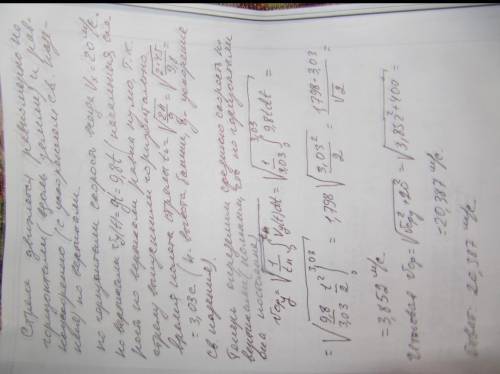 Стрела движется равномерно по
горизонтали (вдоль земли) и рав-
ноускоренно (с ускорением св. паде-
ния) по вертикали.
по горизонтали скорость всюду V₀=20 м/с.
по вертикали Vy(t)=gt=9,8t (начальная ско-
рость по вертикали равна нулю, т.к.
стрелу выпустили горизонтально)
время полёта стрелы tп=√(2H/g)=√(2·45/9,8)
=3,03с (H- высота башни, g- ускорение
св падения).
Теперь определим среднюю скорость по
вертикали (помним, что по горизонтали
она постоянна)
vсрy=√(1/tп ∫₀^tп Vy(t)dt)=√(1/3,03 ∫₀^3,03 9,8tdt)=
=√(9,8/3,03 t²/2|₀^3,03)=1,798√(3,03²/2)=1,798·3,03/√2=
=3,852 м/с
Итоговая Vср=√(V²срy+20²)=√(3,852²+400)=
=20,387 м/с.
Ответ 20,387 м/с.